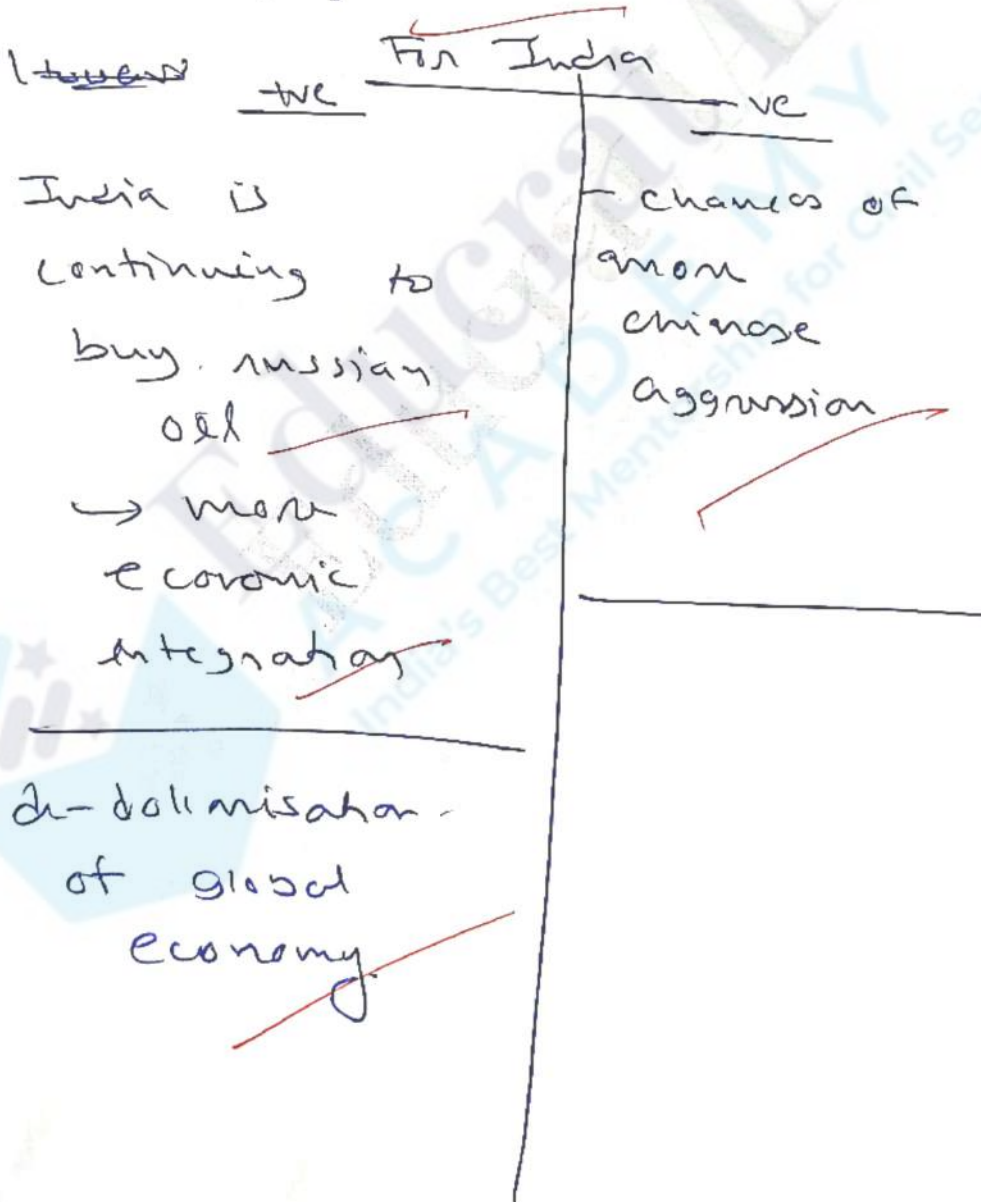 For India
+ve
-ve
India is
continuing to
buy russian
oil
→ more
economic
integration
de-dollarisation
of global
economy
- chances of
more
chinese
aggression
Educrat
ACADEMY
India's Best Mentorship for Civil Se